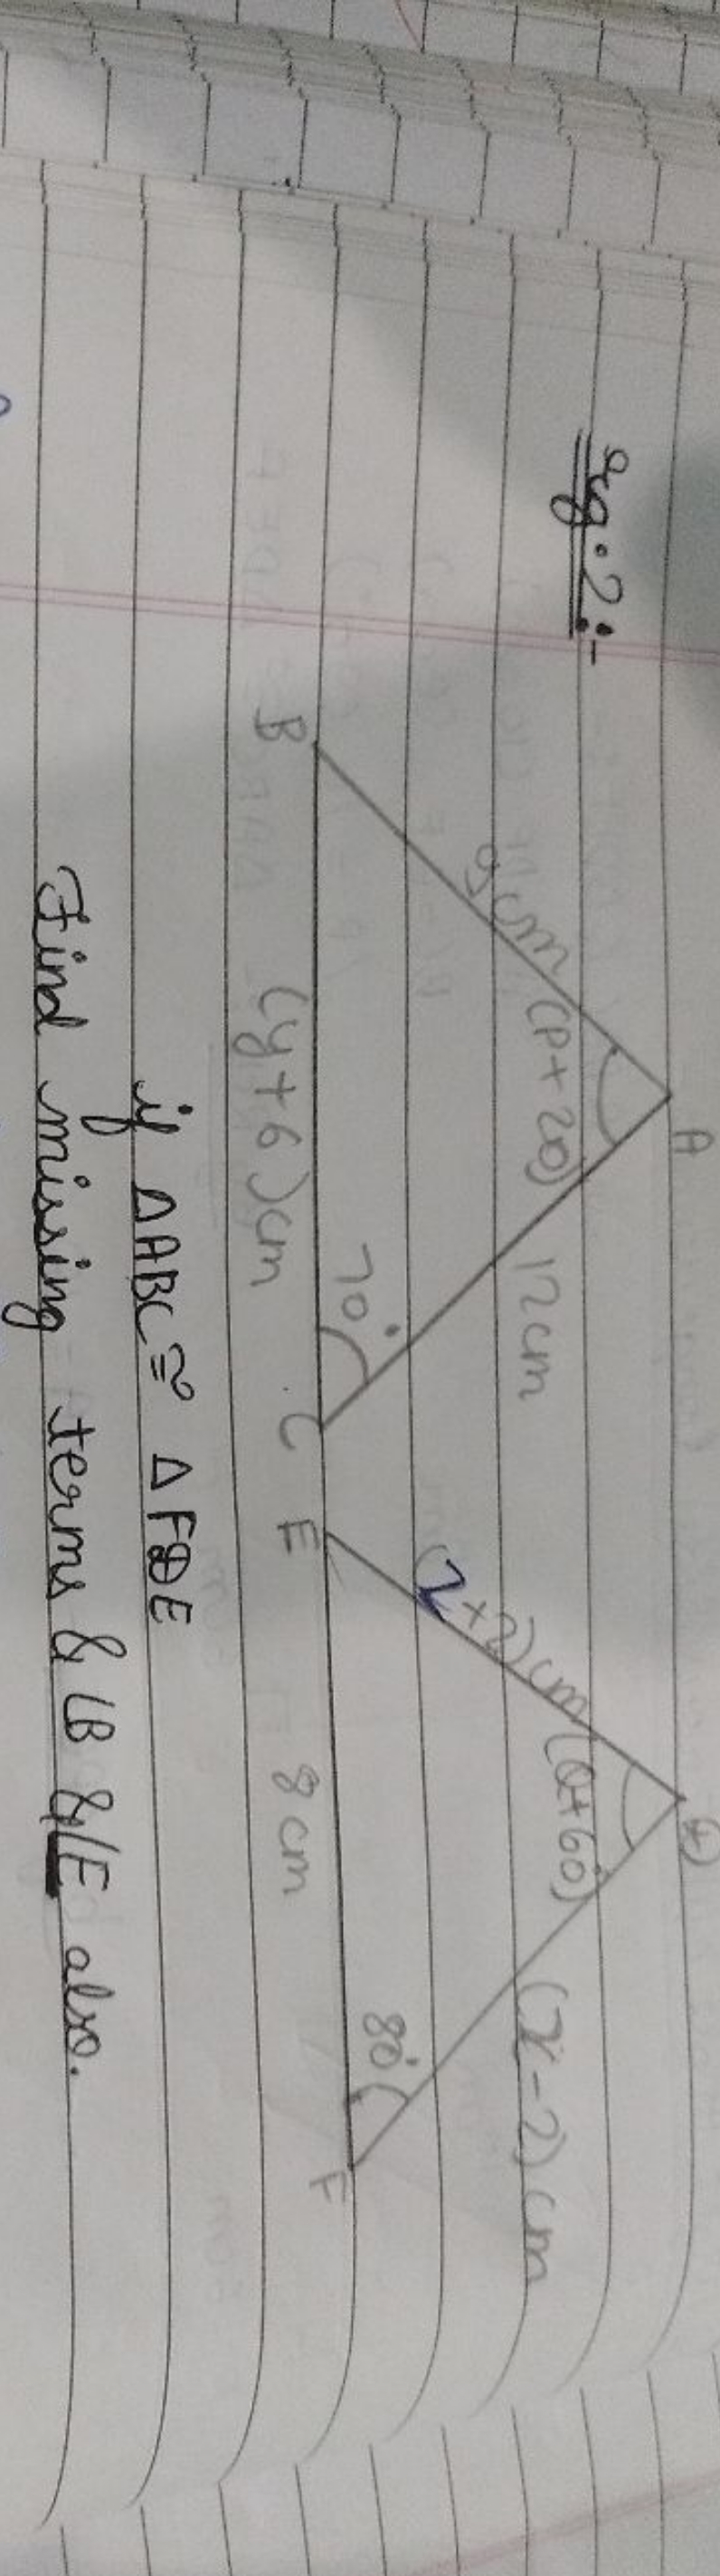 eg.2:-
A
9cm (p+20) 12cm
70°
B (y+6)cm C
D
(z+2)cm (Q+60°) (x-2)cm
80°
E 8cm F
if ΔABC ≅ ΔFDE
Find missing terms & ∠B & ∠E also.